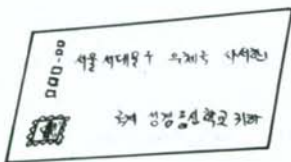 서울 서대문구 우체국 사서함
국제 성경통신학교 귀하